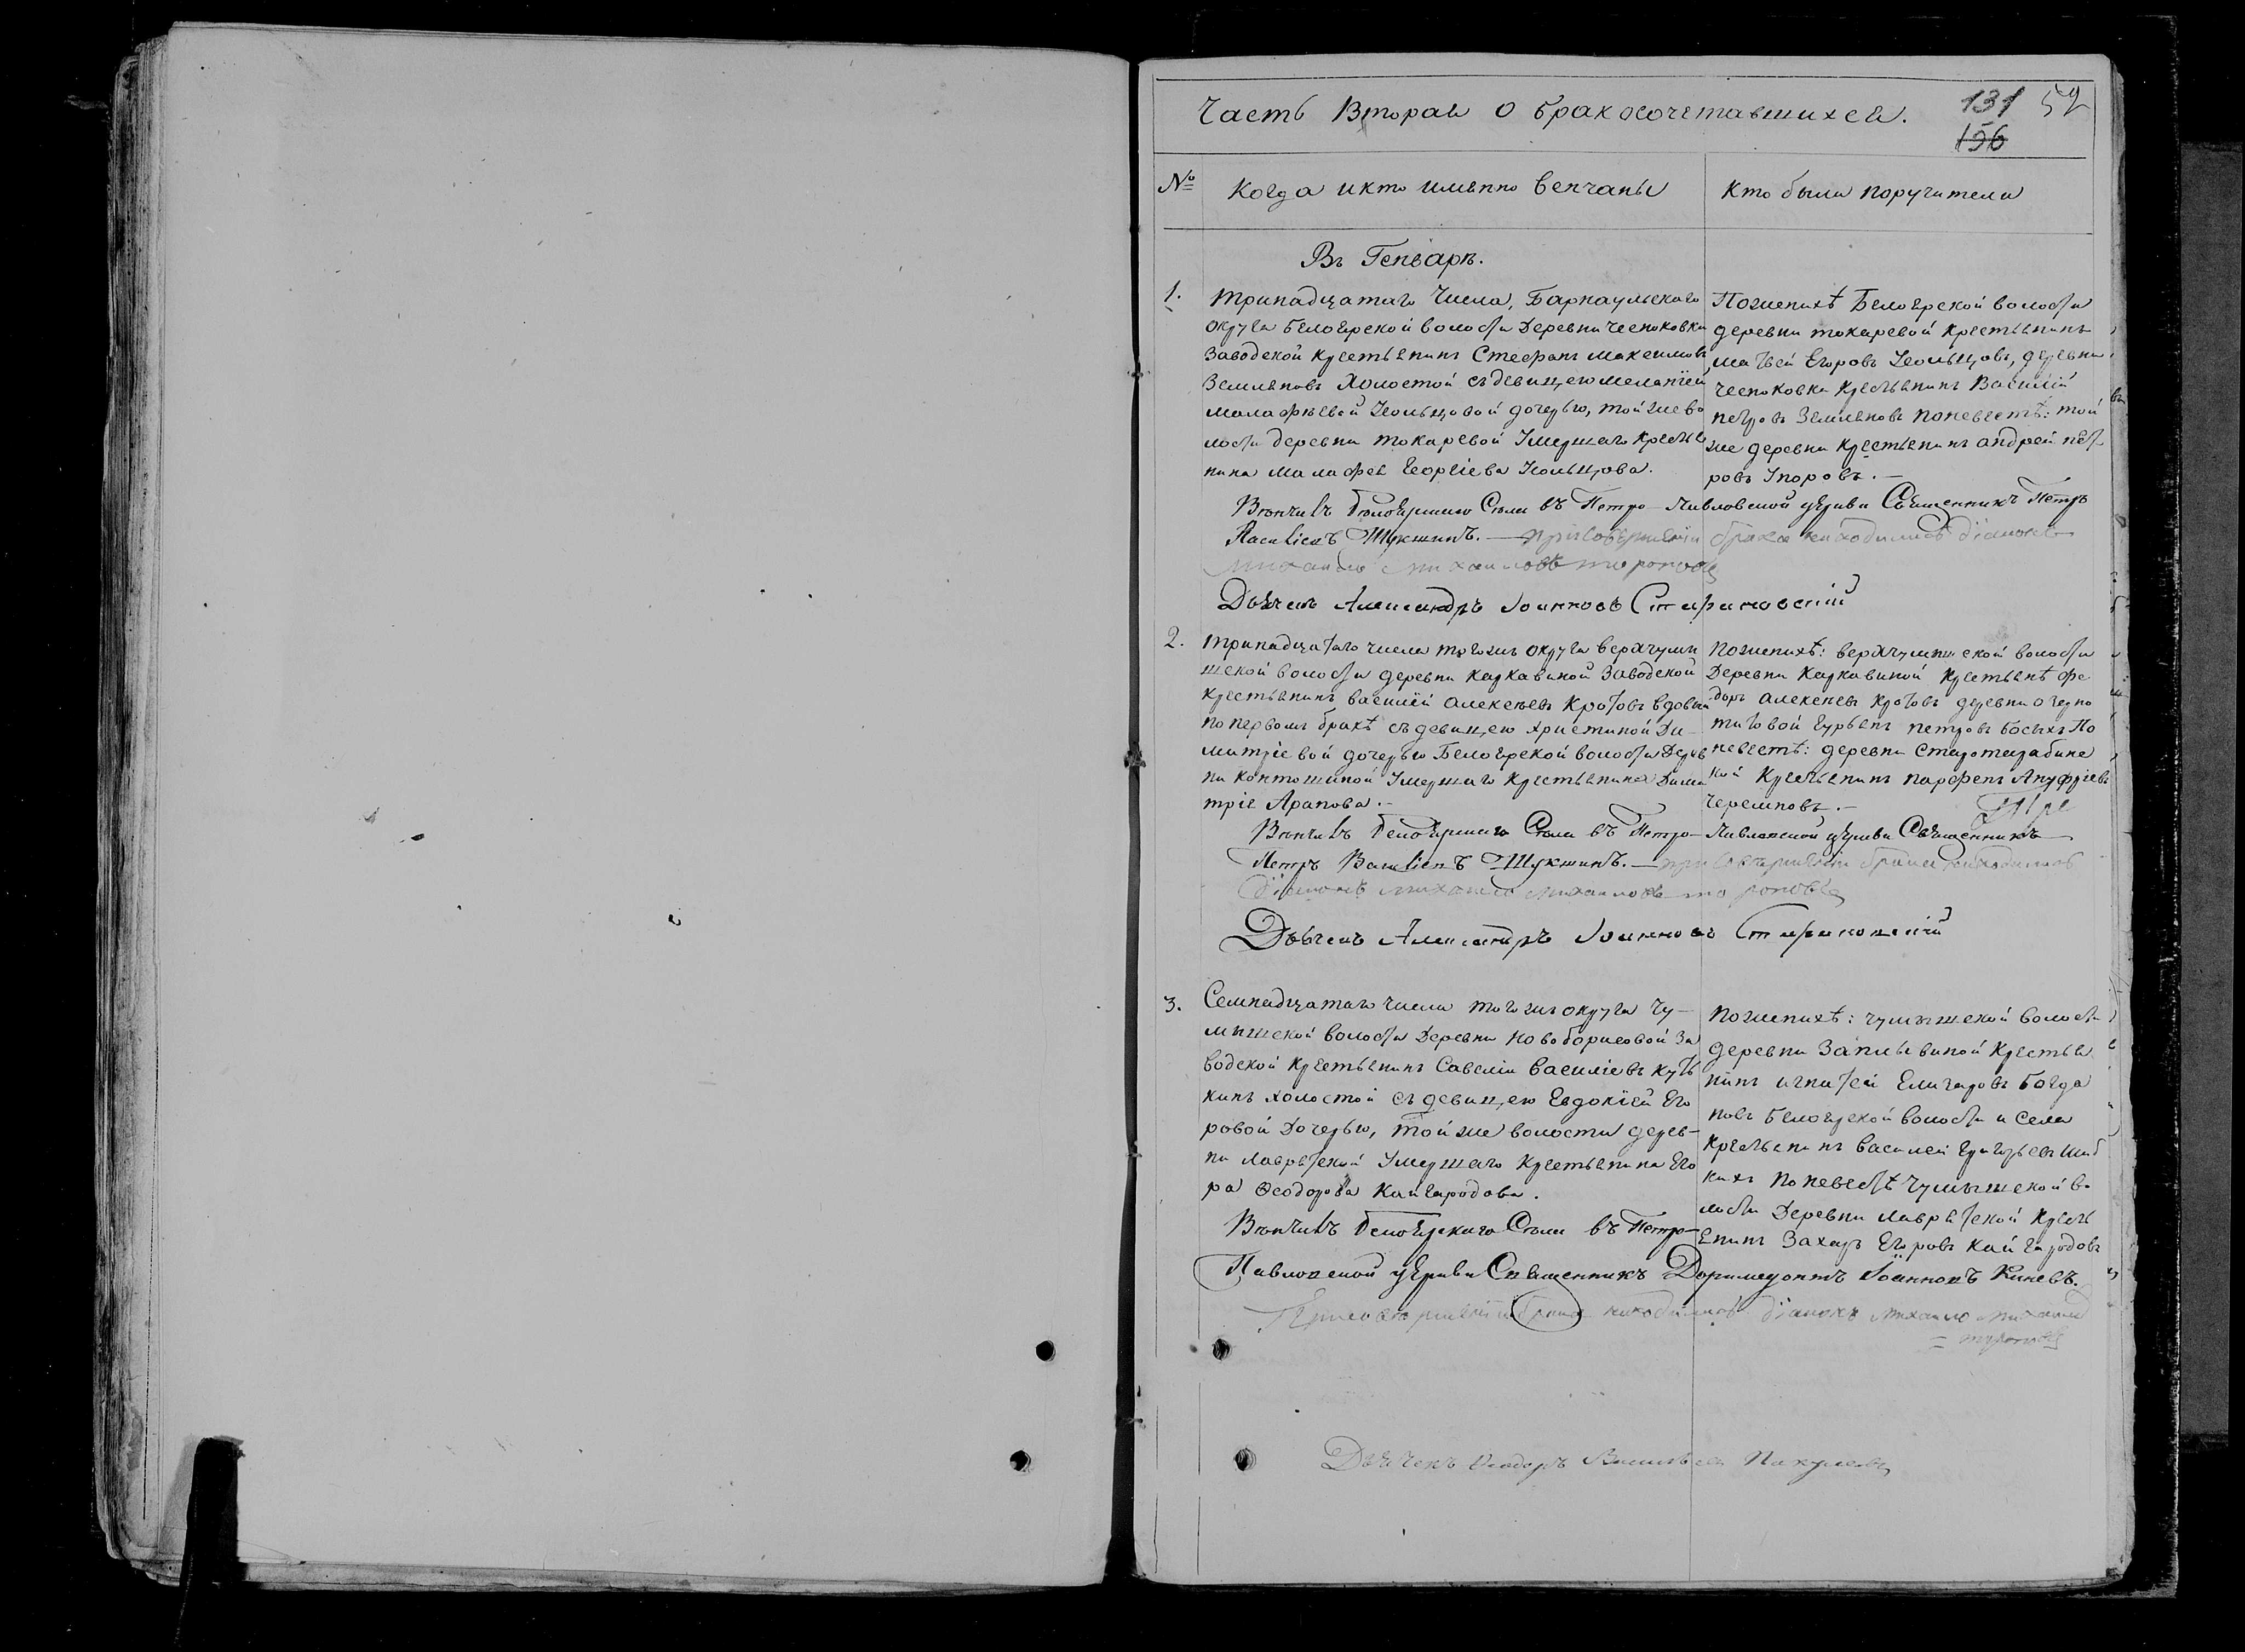 Часть Вторая о бракосочетавшихся.
131 52
156
№ Когда и кто именно венчаны
Кто были поручители
Въ Генваре.
1. Тринадцатаго Числа, Барнаульскаго
округа Белоярской волости Деревни Чесноковки
Заводской Крестьянинъ Стефанъ Максимовъ
Земляновъ Холостой съ девицею Меланіей
Малафѣевой Кольцовой дочерью, той же во
лости деревни Токаревой Умершаго Крестья
нина Малафея Георгіева Кольцова.
По женихѣ Белоярской волости
деревни Токаревой Крестьянинъ
Матвей Егоровъ Кольцовъ, деревни
Чесноковки Крестьянинъ Василій
Петровъ Земляновъ по невестѣ: той
же деревни Крестьянинъ Андрей Пет
ровъ
Вѣнчалъ Белоярскаго Села въ Петро-Павловской церкви Священникъ Петръ
Василіевъ Шукшинъ. — При Совершеніи брака находился діаконъ
Михаилъ Михаиловъ
Дьячекъ Александръ Іоанновъ
2. Тринадцатаго числа того жъ округа Верхчумы
шской волости деревни Каркавиной Заводской
Крестьянинъ Василій Алексеевъ Кротовъ вдовый
по первомъ бракѣ съ девицею Христиной Ди-
митріевой дочерью Белоярской волости Дерев
ни Контошиной Умершаго Крестьянина Дими
трія Арапова.-
По женихѣ: Верхчумышской волости
Деревни Каркавиной Крестьянѣ Фе
доръ Алексеевъ Кротовъ деревни
Петровъ Босыхъ По
невестѣ: деревни
кой Крестьянинъ Парфенъ Ануфріевъ
Черемновъ.-
Вѣнчалъ Белоярскаго Села въ Петро-Павловской церкви Священникъ
Петръ Василіевъ Шукшинъ. — при Совершеніи брака находился
діаконъ Михаилъ Михаиловъ
Дьячекъ Александръ Іоанновъ
3. Семнадцатаго числа того жъ округа Чу-
мышской волости Деревни Новоборисовой За
водской Крестьянинъ Савелій Василіевъ
холостой съ девицею Евдокіей Его
ровой Дочерью, той же волости дерев-
ни Лаврѣтской Умершаго Крестьянина Его
ра Ѳеодорова Кайгародова.
По женихѣ: Чумышской волости
деревни Крестья
нинъ Игнатей Богда
новъ Белоярской волости и Села
Крестьянинъ Василей Григорьевъ
по невестѣ Чумышской во
лости Деревни Лаврѣтской Кресть
янинъ Захаръ Егоровъ Кайгародовъ
Вѣнчалъ Белоярскаго Села въ Петро-
Павловской церкви Священникъ Доримедонтъ Іоанновъ Киневъ.
При совершеніи брака находился діаконъ Михаилъ
Дьячекъ Ѳеодоръ